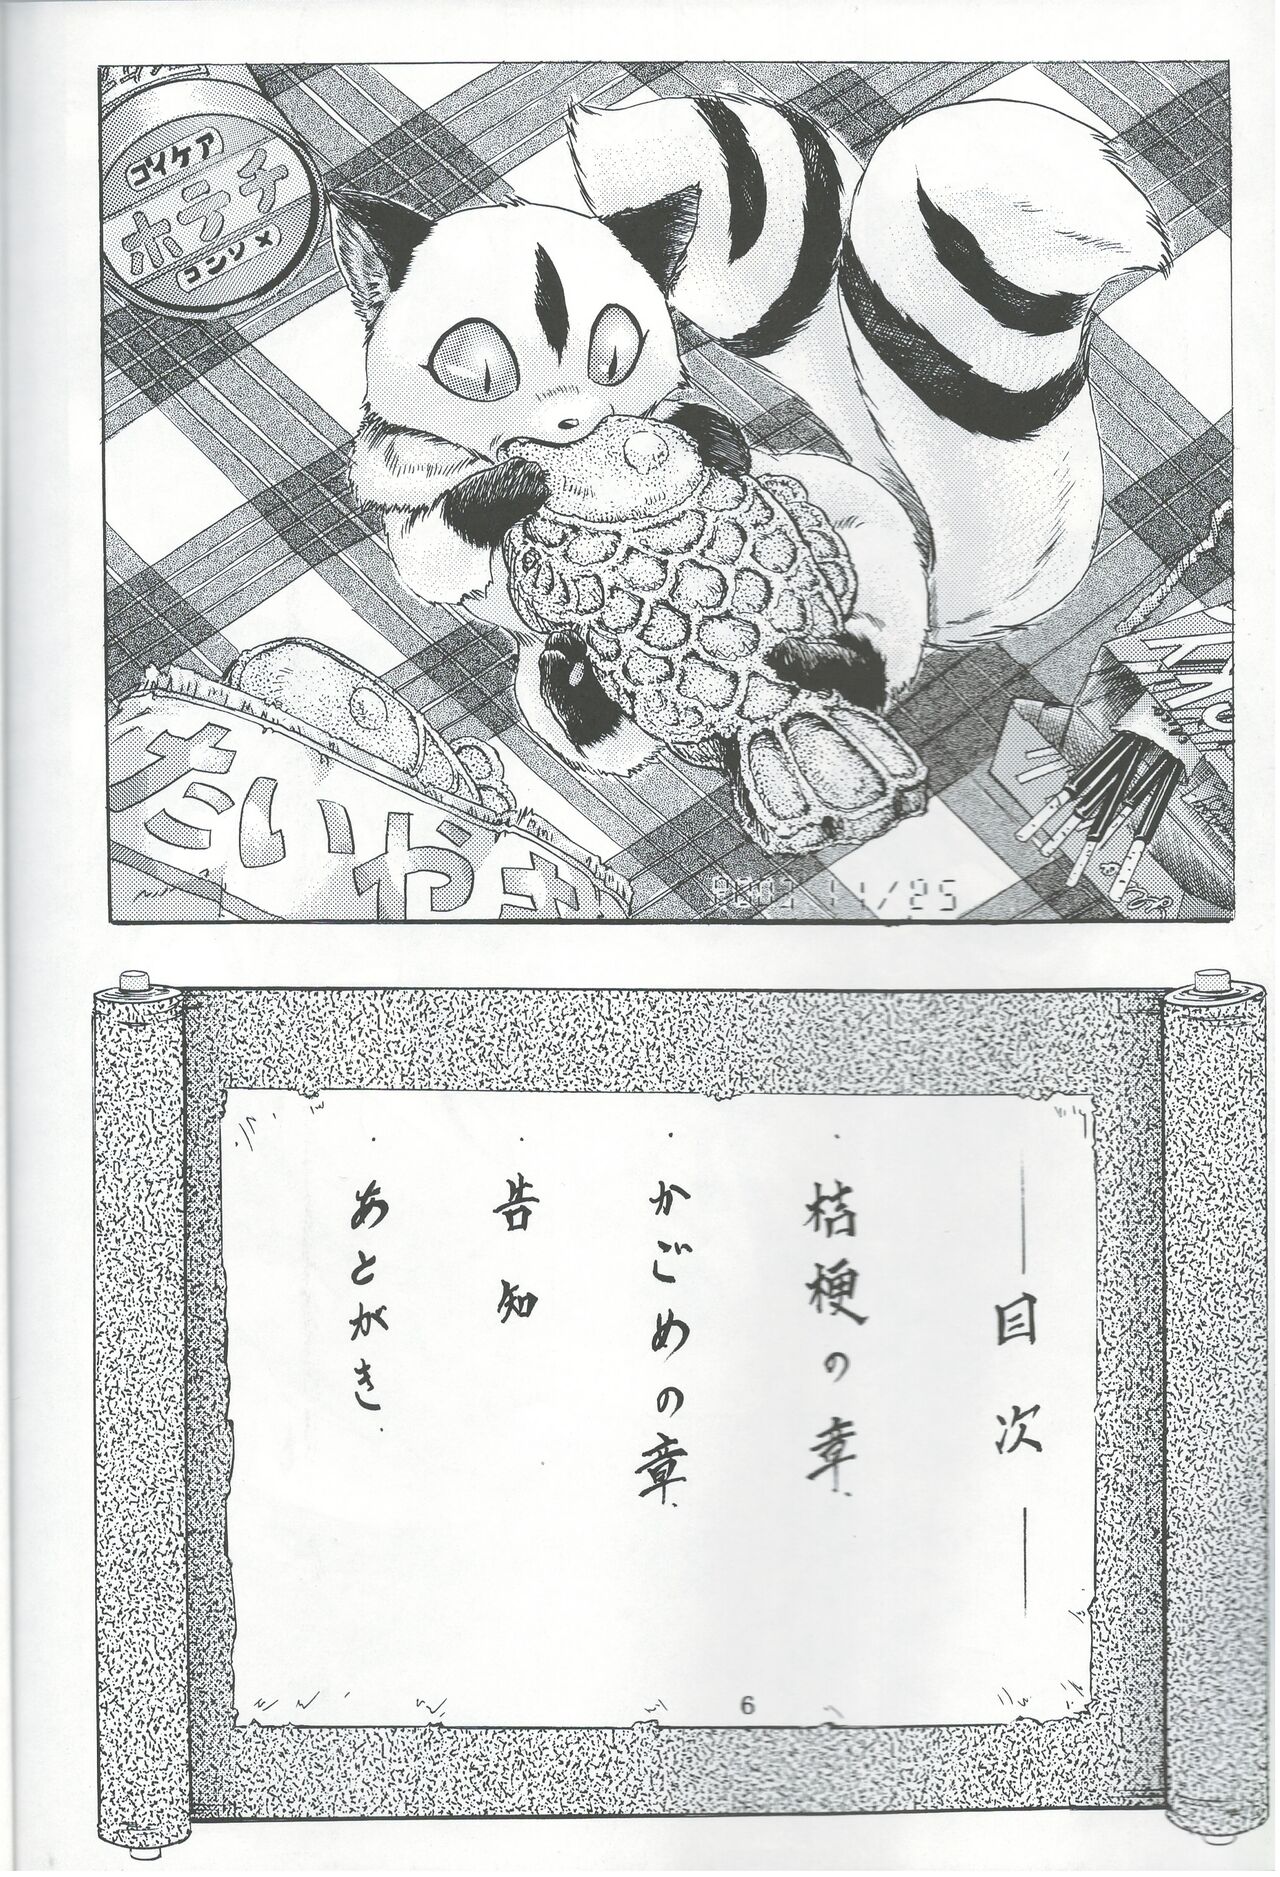 コイケア
ホテチ
コンソメ
たいやき
目次
・桔梗の章.
・かごめの章.
・告知
・あとがき.
6